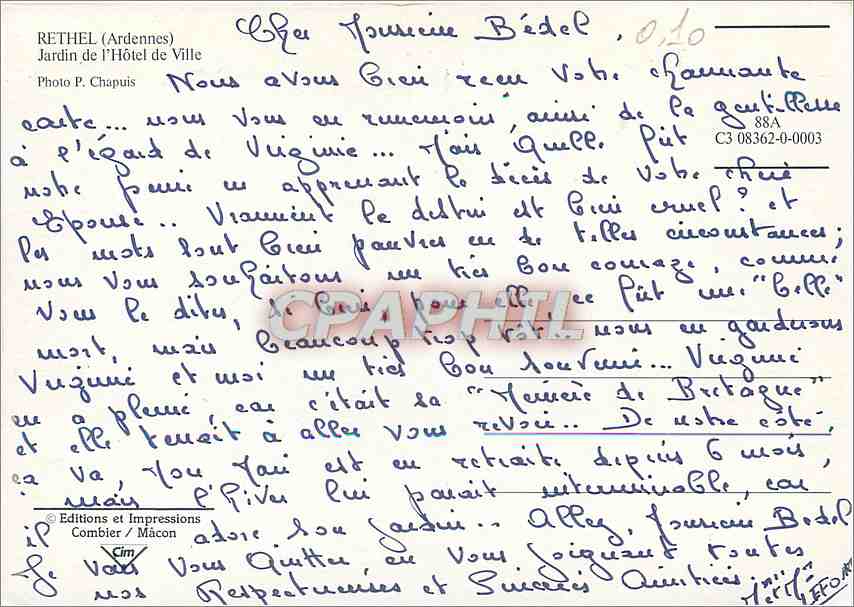 RETHEL (Ardennes)
Jardin de l'Hôtel de Ville
Photo P. Chapuis
Cher Monsieur Bédel,
0,10
Nous avons bien reçu votre charmante
carte... nous vous en remercions, ainsi de la gentillesse
88A
C3 08362-0-0003
à l'égard de Virginie... Mais quelle fût
notre peine en apprenant le décès de votre chère
Epouse... Vraiment le destin est bien cruel? et
les mots sont bien pauvres en de telles circonstances;
nous vous souhaitons un très bon courage, comme
vous le dites, si bien, pour elle, ce fût une "belle"
mort, mais beaucoup trop tôt... nous en gardons
Virginie et moi un très bon souvenir... Virginie
en a pleuré, car c'était sa "Mémère de Bretagne"
et elle tenait à aller vous revoir... De notre côté,
ça va, Mon Mari est en retraite depuis 6 mois,
mais l'hiver lui parait interminable, car
il adore son jardin... Allez, Monsieur Bedel
Je vais vous quitter, en vous joignant toutes
nos Respectueuses et Sincères Amitiés.
© Editions et Impressions
Combier / Mâcon
Cim
CPAPHIL